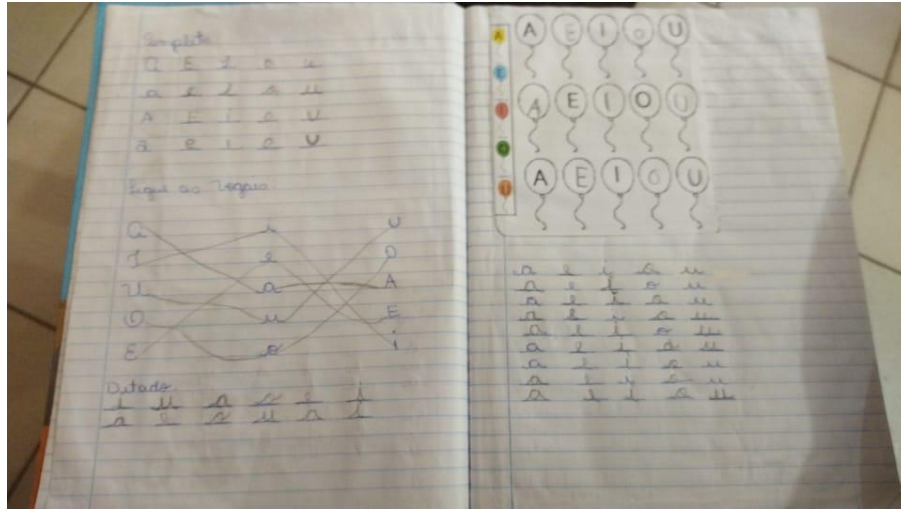 Complete
a E I o u
a e i o u
A E i o U
a e i o U
Ligue as vogais
a i U
I e O
U a A
O u E
E o i
Ditado
i u a o e i
a e o u a i
A
E
I
O
U
A E I O U
A E I O U
A E I O U
a e i o u
a e i o u
a e i o u
a e i o u
a e i o u
a e i o u
a e i o u
a e i o u
a e i o u